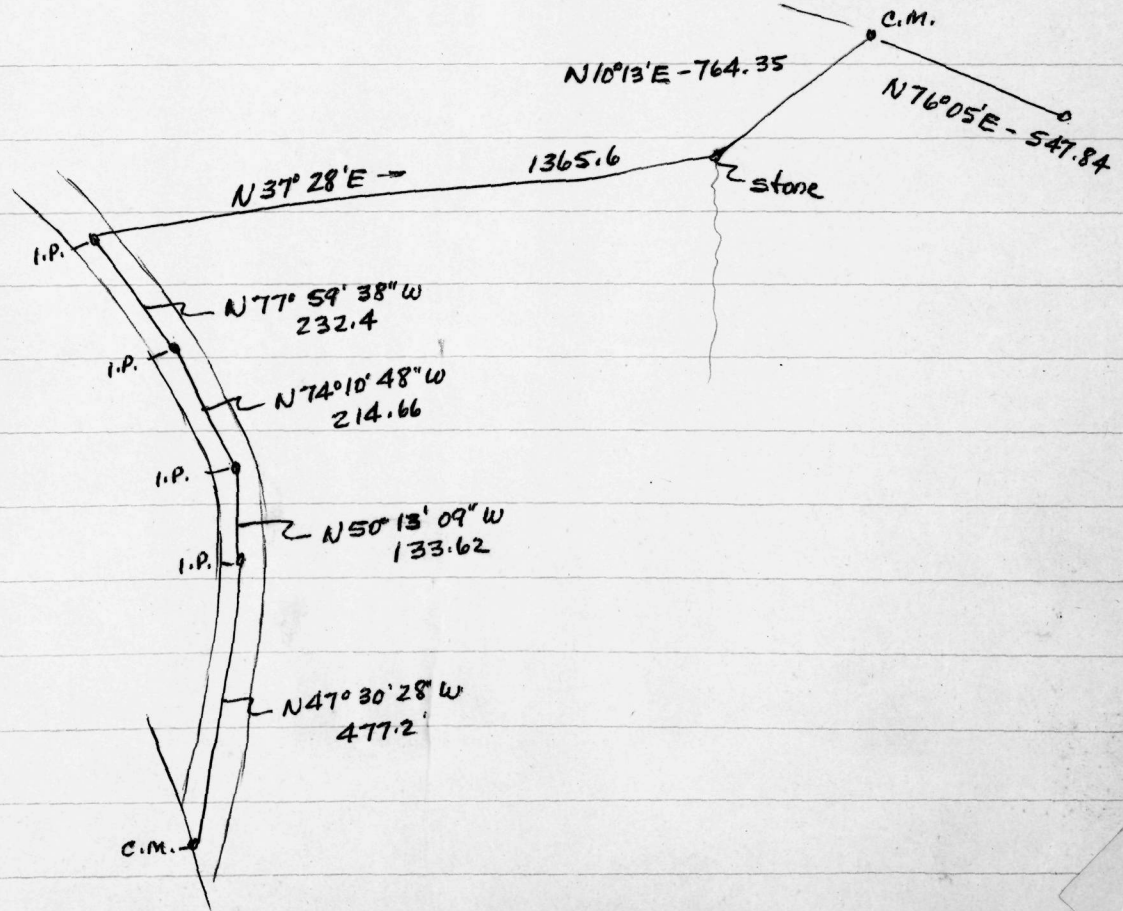 C.M.
N10°13'E - 764.35
N76°05'E - 547.84
1365.6
N37° 28'E →
stone
I.P.
N77° 59' 38" W
232.4
I.P.
N74°10' 48" W
214.66
I.P.
N50° 13' 09" W
133.62
I.P.
N47° 30' 28" W
477.2'
C.M.